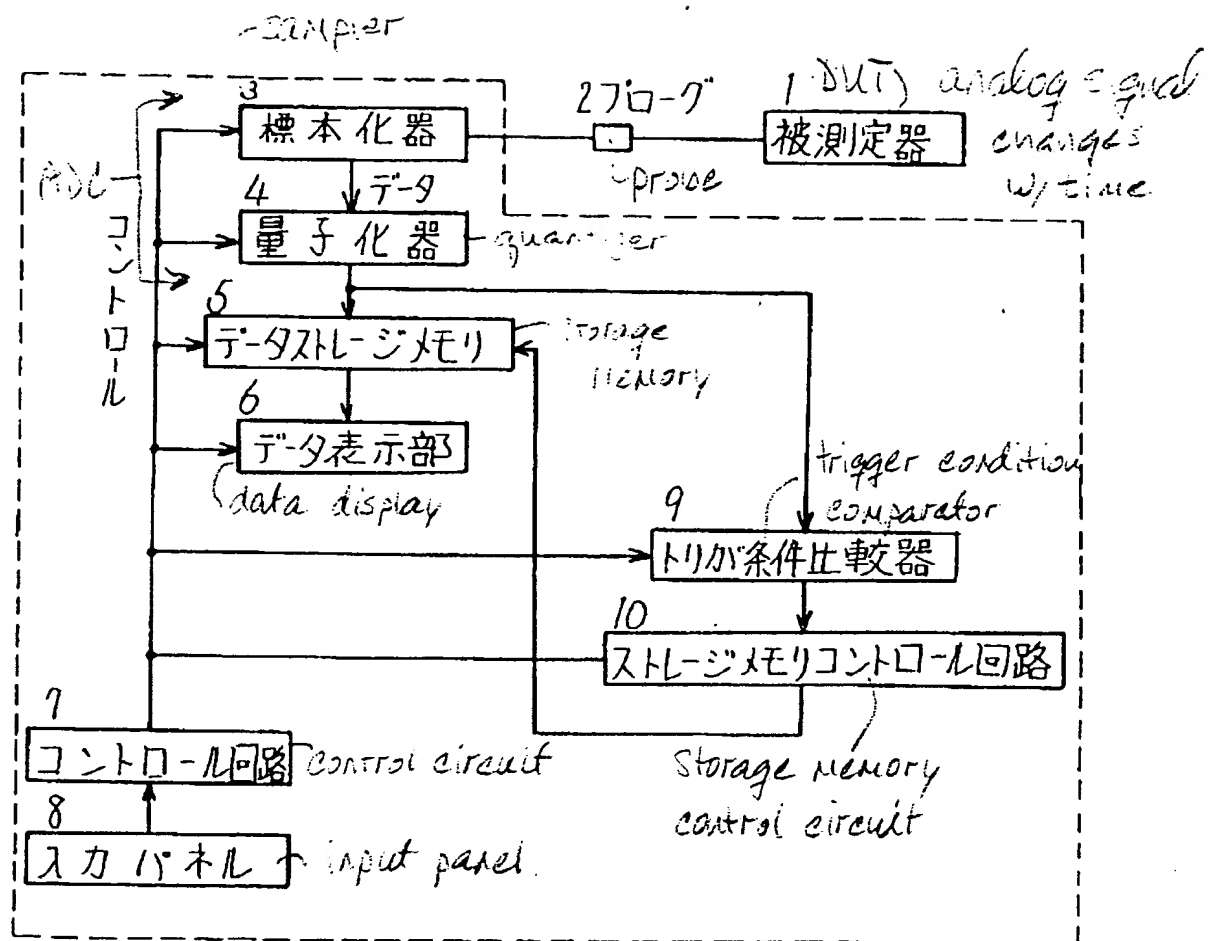 sampler
3
標本化器
2プローグ
probe
1 DUT)
被測定器
analog signal
changes
w/time
ADC
コントロール
データ
4
量子化器
quantizer
5
データストレージメモリ
storage
memory
6
データ表示部
data display
trigger condition
comparator
9
トリガ条件比較器
10
ストレージメモリコントロール回路
storage memory
control circuit
7
コントロール回路
control circuit
8
入力パネル
input panel.